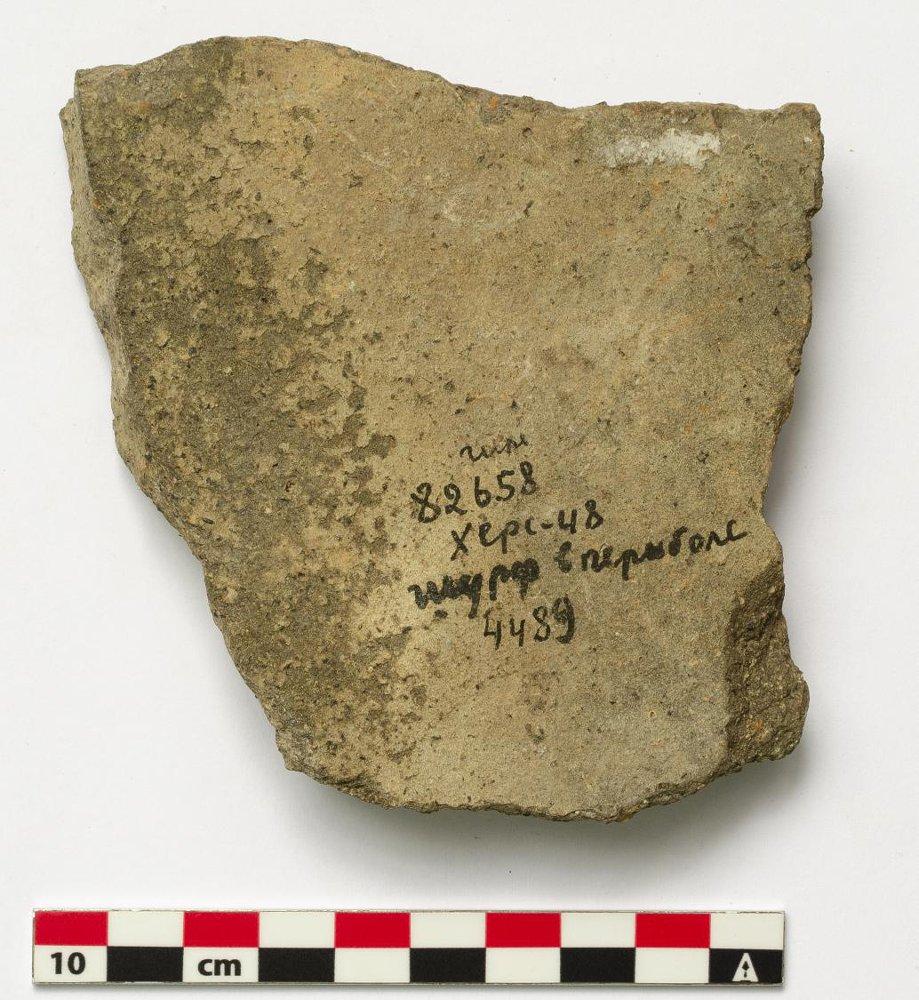 82658
Херс-48
шурф в перыболе
4489
10 cm